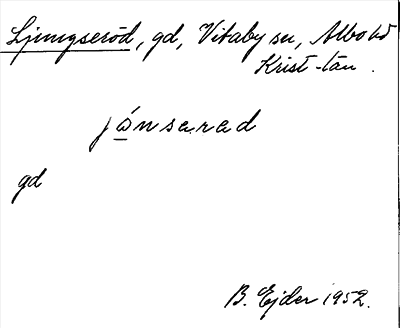 Ljungseröd, gd, Vitaby sn, Albo hd
Krist-län.
jó̲nsarad
gd
B. Ejder 1952.